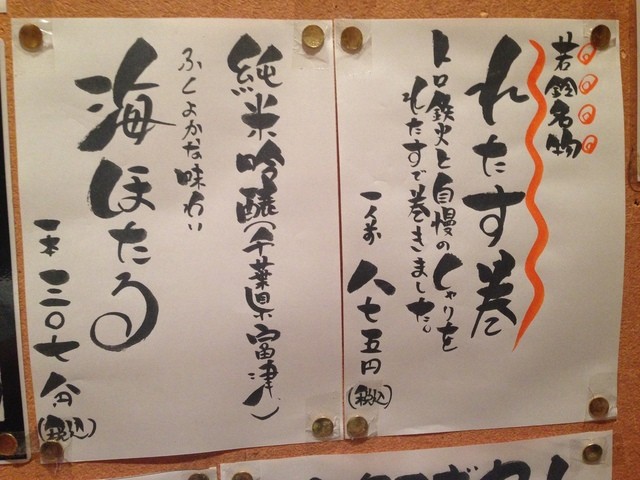 若鈴名物
れたす巻
トロ鉄火と自慢のしゃりを
れたすで巻きました。
一人前 八七五円(税込)
純米吟醸(千葉県富津)
ふくよかな味わい
海ほたる
一本 一三〇七円(税込)